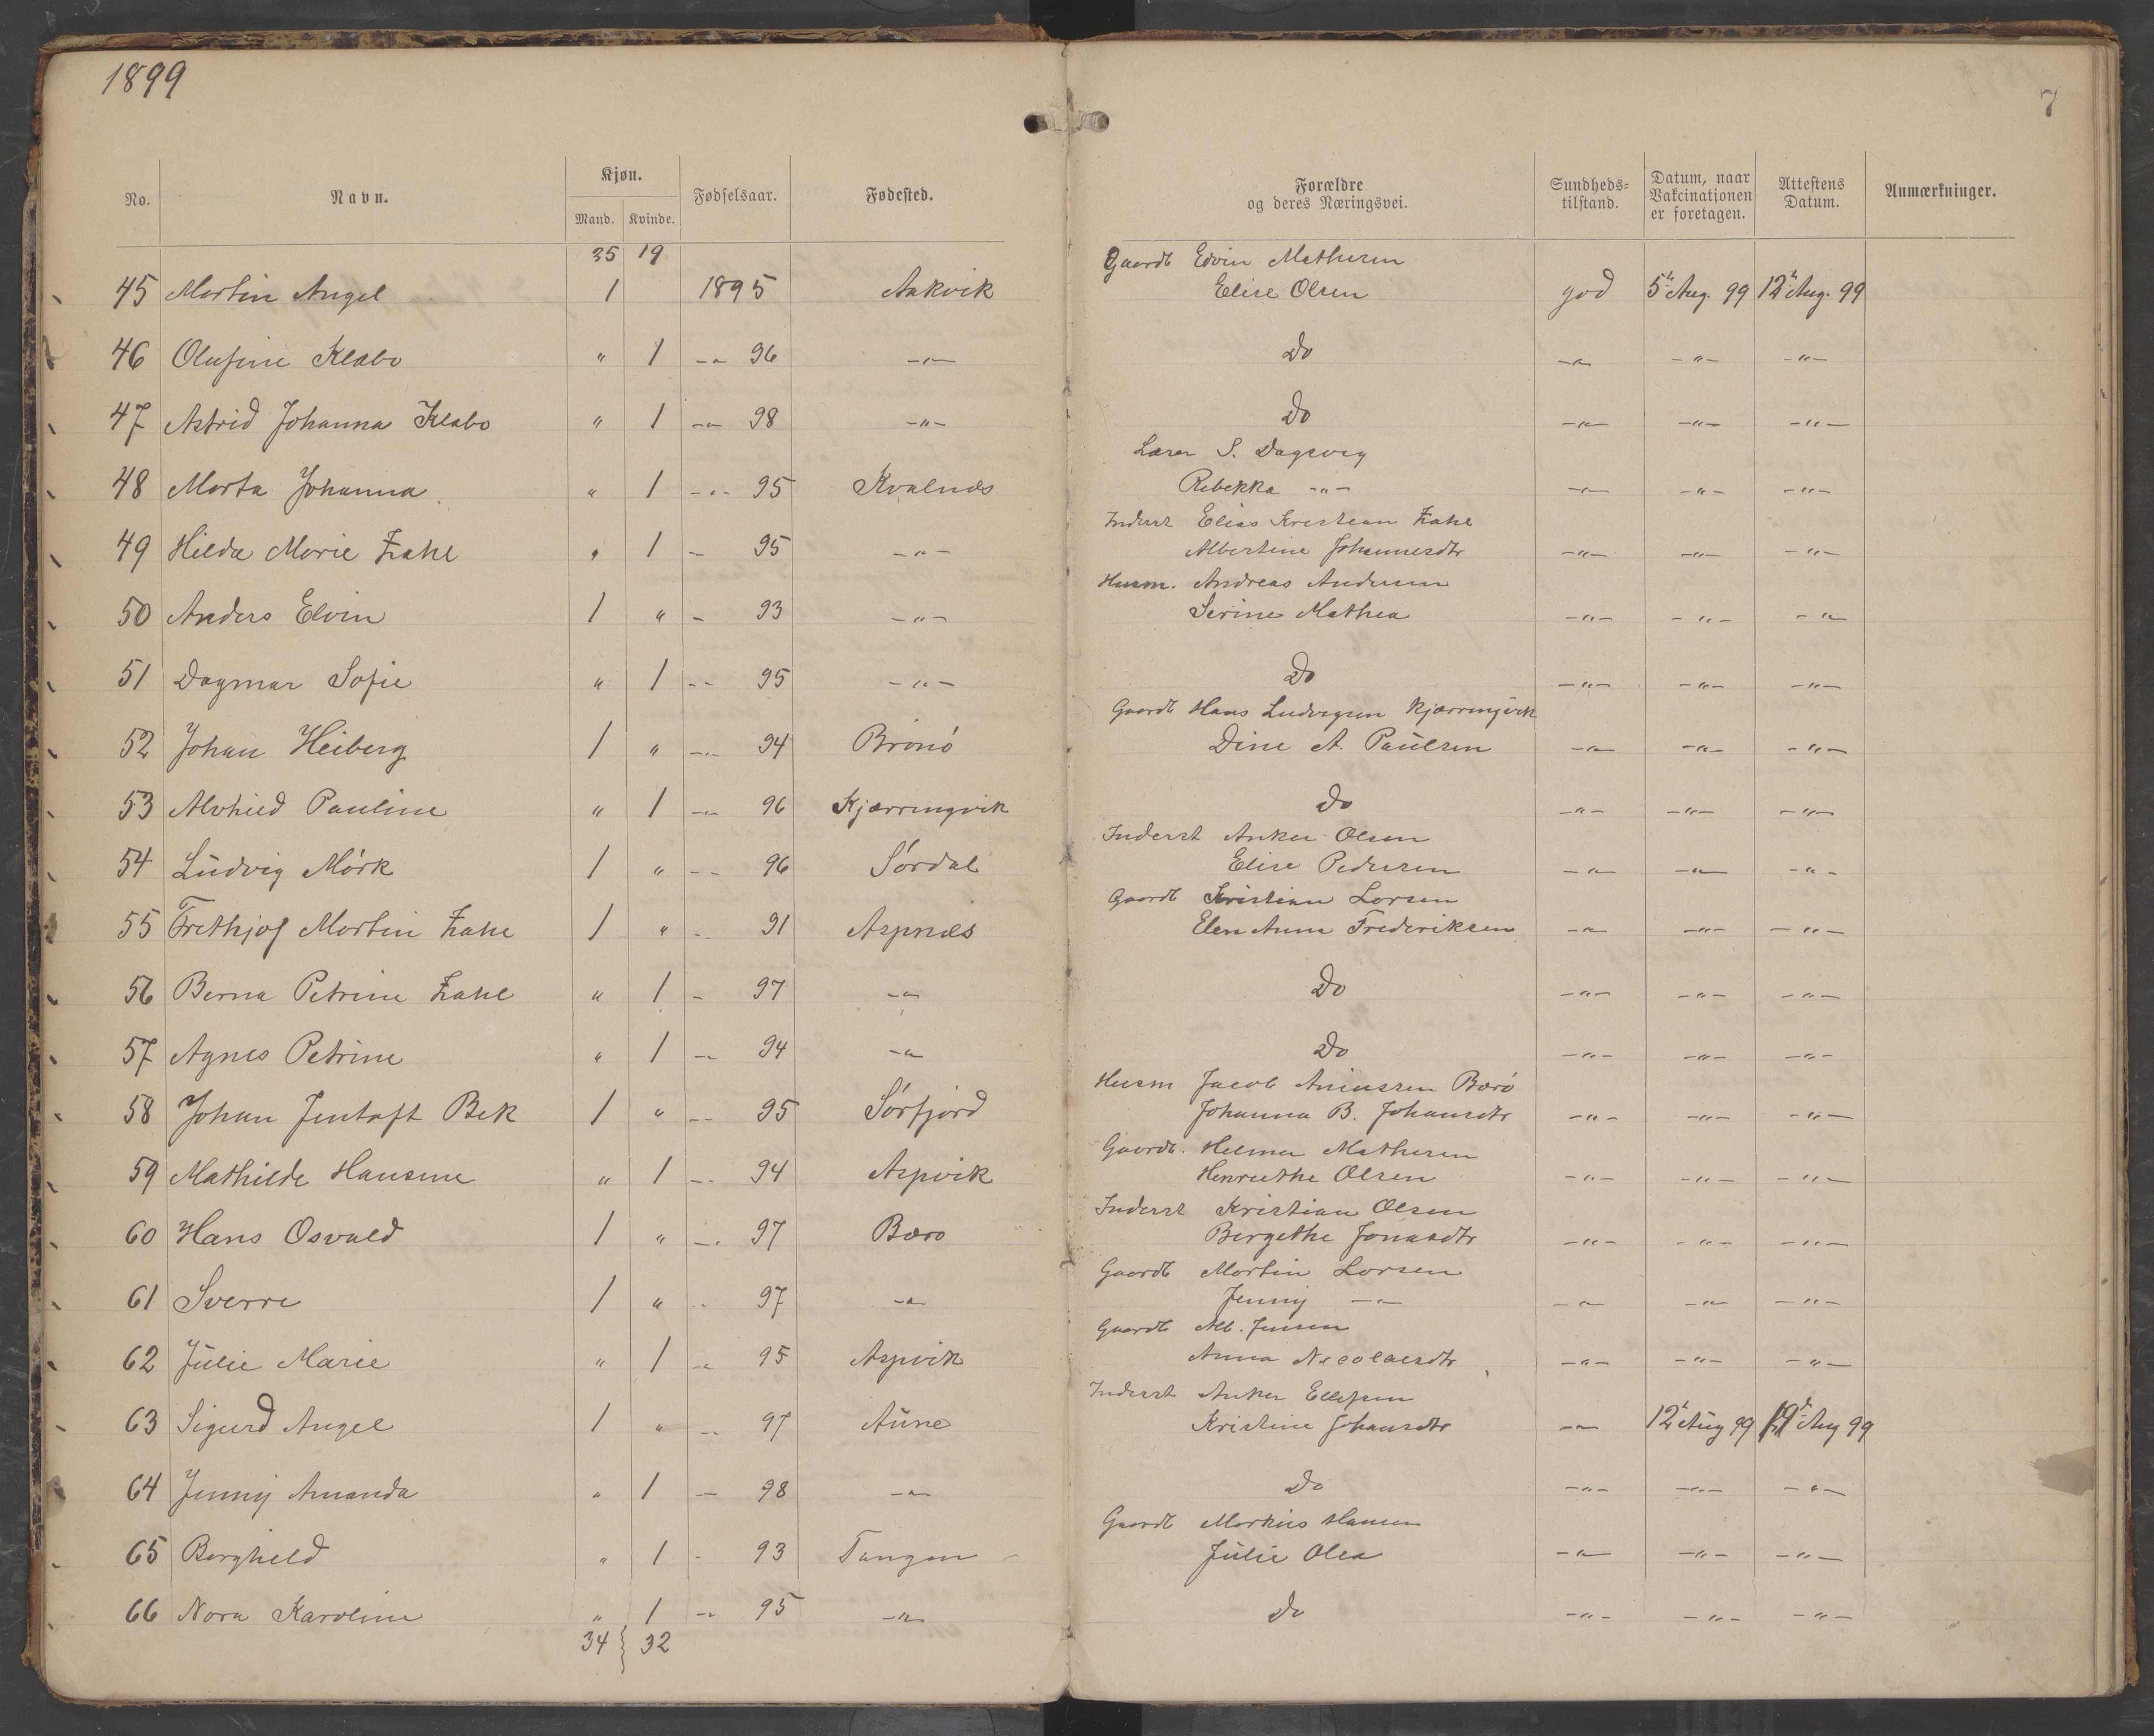 1899
7
No. Navn. Kjøn. Mand. Kvinde. Fødselsaar. Fødested. Forældre og deres Næringsvei. Sundheds-tilstand. Datum, naar Vakcinationen er foretagen. Attestens Datum. Anmærkninger.
35 19 Gaardb Edvin Mathesen
45 Martin Angel 1 1895 Aakvik Elise Olsen god 5te Aug. 99 12te Aug. 99
46 Olufine Klæbo " 1 -"- 96 -"- Do -"- -"- -"-
47 Astrid Johanna Klæbo " 1 -"- 98 -"- Do -"- -"- -"-
Lærer S. Dagsvig
48 Marta Johanna " 1 -"- 95 Kvalnæs Rebekka -"- -"- -"- -"-
Inderst Elias Kristian Zahl
49 Hilda Marie Zahl " 1 -"- 95 -"- Albertine Johannesdtr -"- -"- -"-
Husm. Andreas Andersen
50 Anders Elvin 1 " - 93 -"- Serine Mathea -"- -"- -"-
51 Dagmar Sofie " 1 -- 95 -"- Do -"- -"- -"-
Gaardb Hans Ludvigsen Kjærringvik
52 Johan Heiberg 1 " -"- 94 Brønø Dine A. Paulsen -"- -"- -"-
53 Alvhild Pauline " 1 -"- 96 Kjærringvik Do -"- -"- -"-
Inderst Anker Olsen
54 Ludvig Mørk 1 " -- 96 Sørdal Elise Pedersen -"- -"- -"-
Gaardb Kristian Larsen
55 Frithjof Martin Zahl 1 " -- 91 Aspnæs Elen Anna Frederiksen -"- -"- -"-
56 Berna Petrine Zahl " 1 - 97 -"- Do -"- -"- -"-
57 Agnes Petrine " 1 -- 94 -"- Do -"- -"- -"-
Husm Jacob Aniussen Bærø
58 Johan Jentoft Bek 1 " -- 95 Sørfjord Johanna B. Johansdtr -"- -"- -"-
Gaardb. Helmer Mathesen
59 Mathilde Hansine " 1 -- 94 Aspvik Henriethe Olsen -"- -"- -"-
Inderst Kristian Olsen
60 Hans Osvald 1 " -- 97 Bærø Bergethe Jonasdtr -"- -"- -"-
Gaardb Martin Larsen
61 Sverre 1 " -- 97 -"- Jenny -"- -"- -"- -"-
Gaardb Alb. Jensen
62 Julie Marie " 1 -"- 95 Aspvik Anna Nicolaisdtr -"- -"- -"-
Inderst Anker Ellefsen
63 Sigurd Angel 1 " -- 97 Aune Kristine Johansdtr -"- 12te Aug 99 19de Aug 99
64 Jenny Amanda " 1 -- 98 -"- Do -"- -"- -"-
Gaardb Markus Hansen
65 Borghild " 1 - 93 Tangen Julie Olea -"- -"- -"-
66 Nora Karoline " 1 -- 95 -"- Do -"- -"- -"-
34 } 32